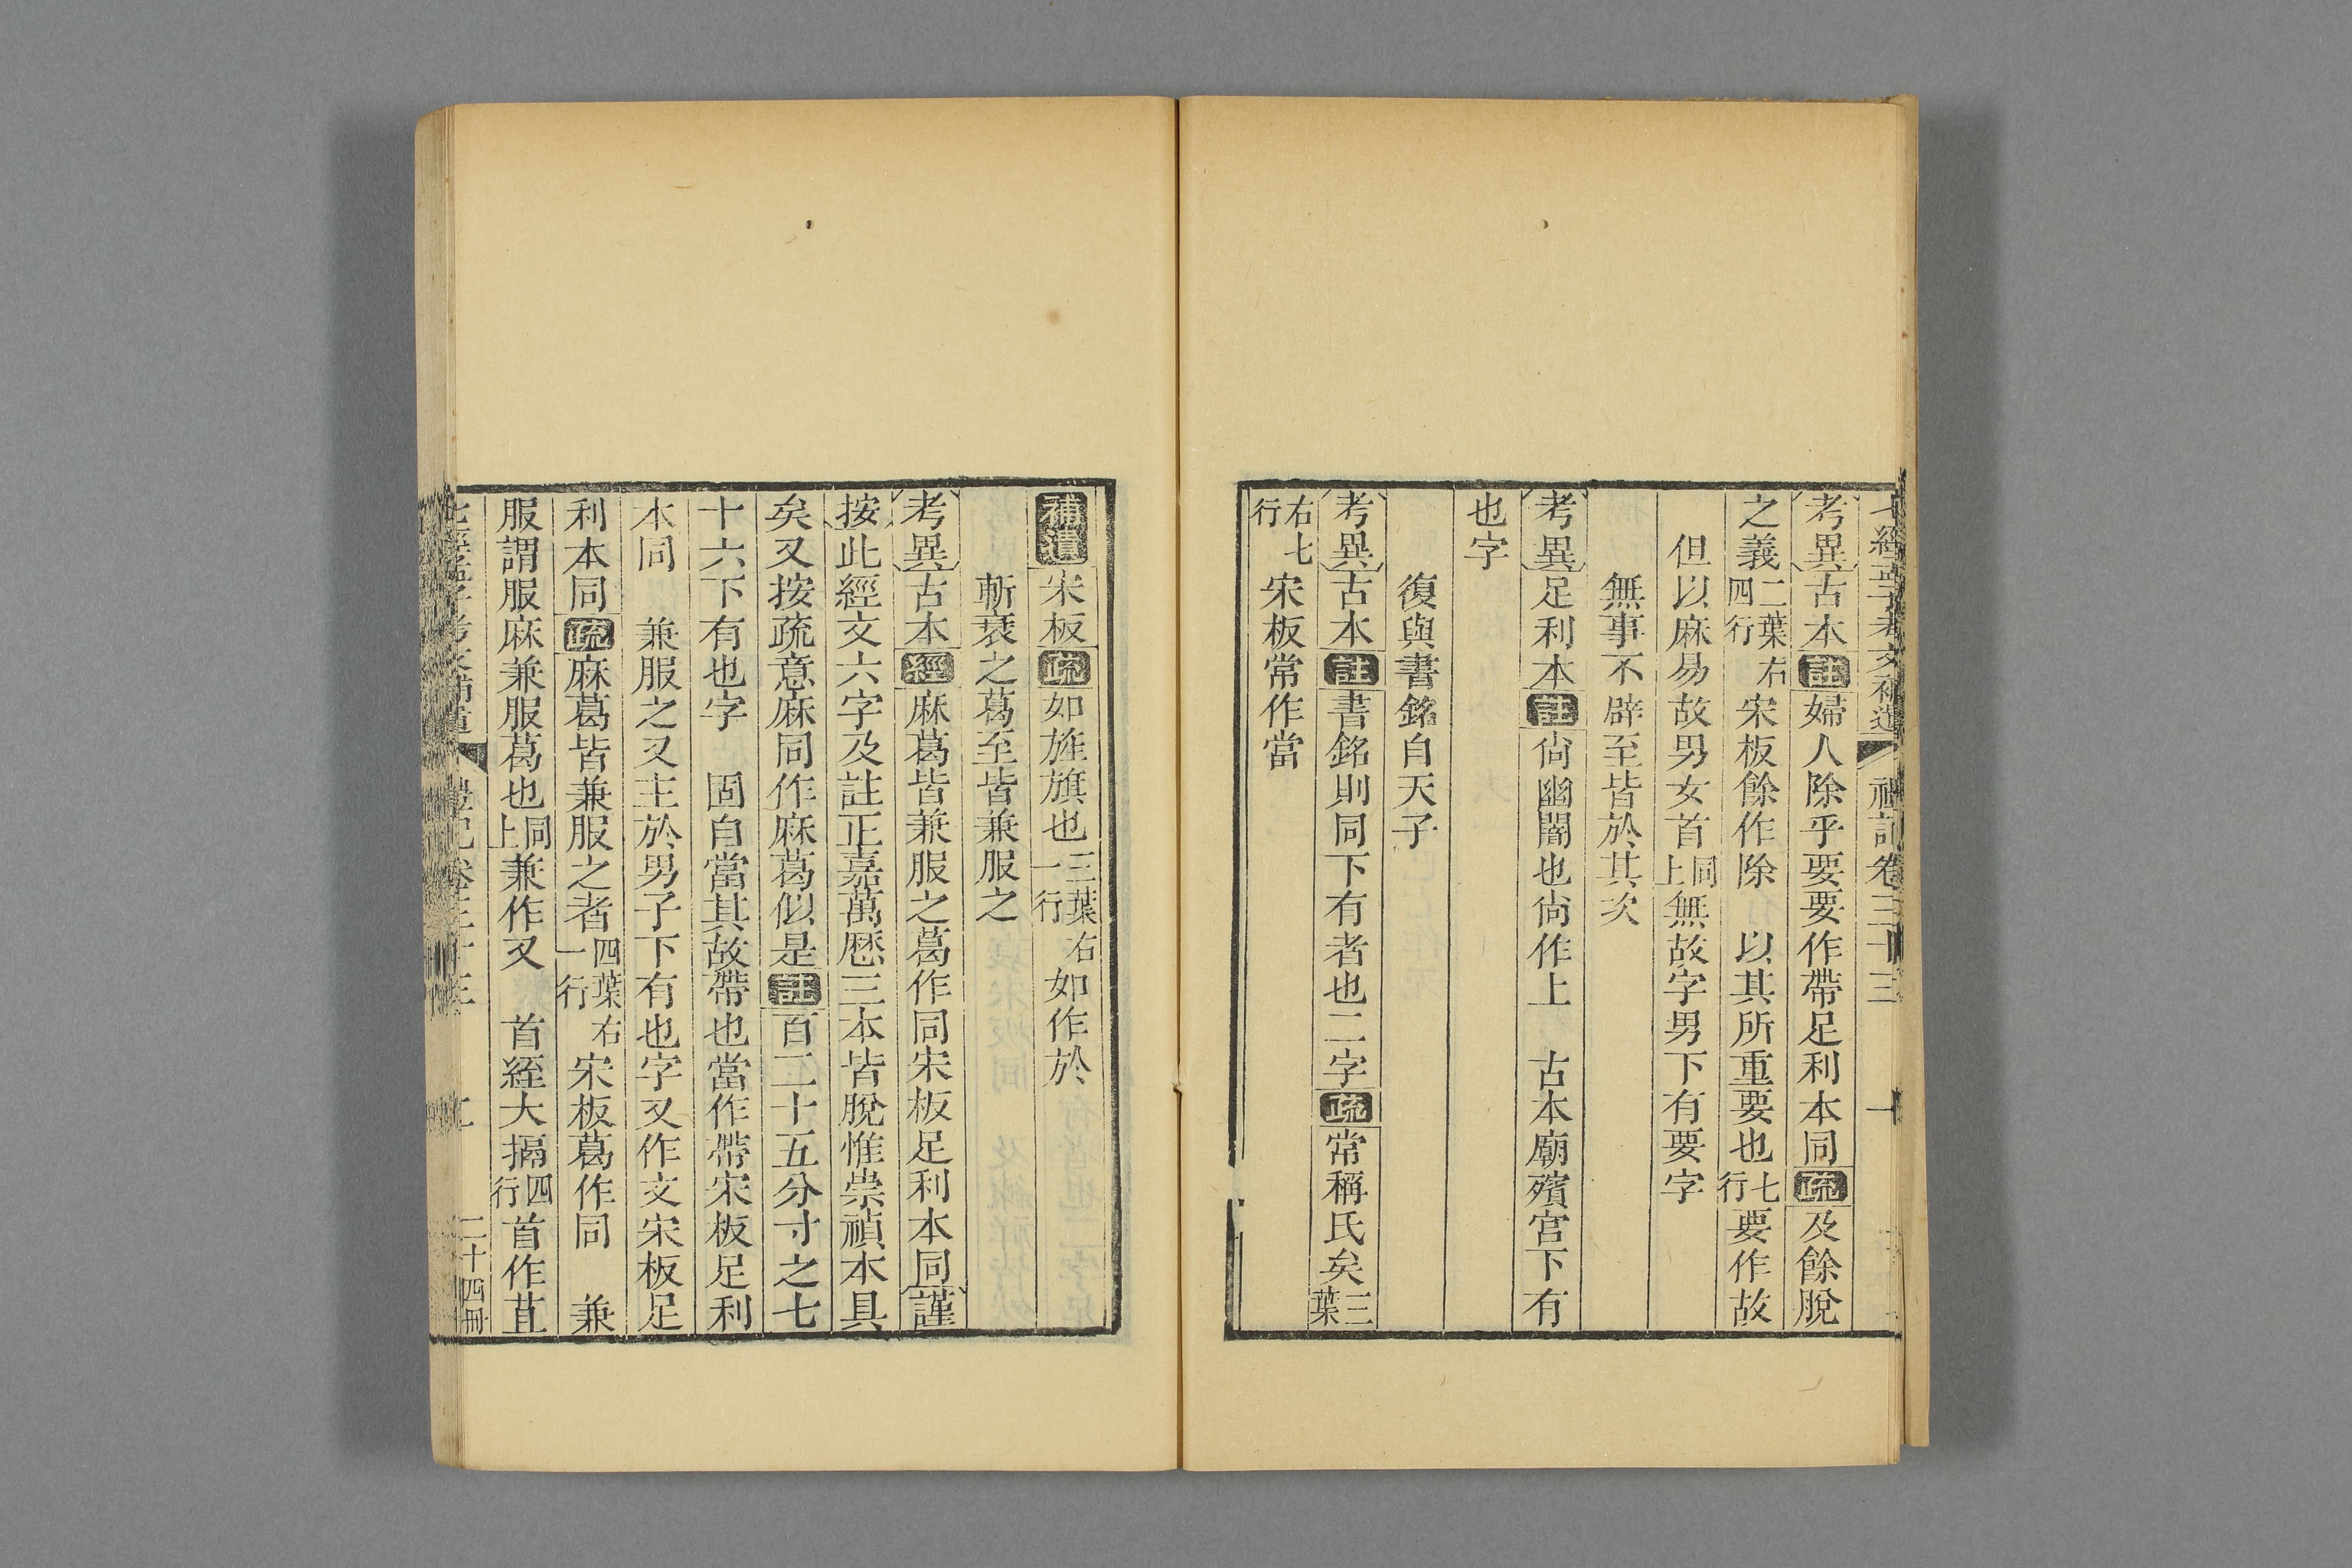 七經孟子考文補遺 禮記卷三十三 一
考異古本註婦人除乎要要作帶足利本同疏及餘脫
之義二葉右四行宋板餘作除 以其所重要也七行要作故
但以麻易故男女首同上無故字男下有要字
無事不辟至皆於其次
考異足利本註尙幽闇也尙作上 古本廟殯宮下有
也字
復與書銘自天子
考異古本註書銘則同下有者也二字疏常稱氏矣三葉
右七行宋板常作當
補遺宋板疏如旌旗也三葉右一行如作於
斬衰之葛至皆兼服之
考異古本經麻葛皆兼服之葛作同宋板足利本同謹
按此經文六字及註正嘉萬曆三本皆脫惟崇禎本具
矣又按疏意麻同作麻葛似是註百二十五分寸之七
十六下有也字 固自當其故帶也當作帶宋板足利
本同 兼服之又主於男子下有也字又作文宋板足
利本同疏麻葛皆兼服之者四葉右一行宋板葛作同 兼
服謂服麻兼服葛也同上兼作又 首絰大搹四行首作苴
七經孟子考文補遺 禮記卷三十三 二十四冊